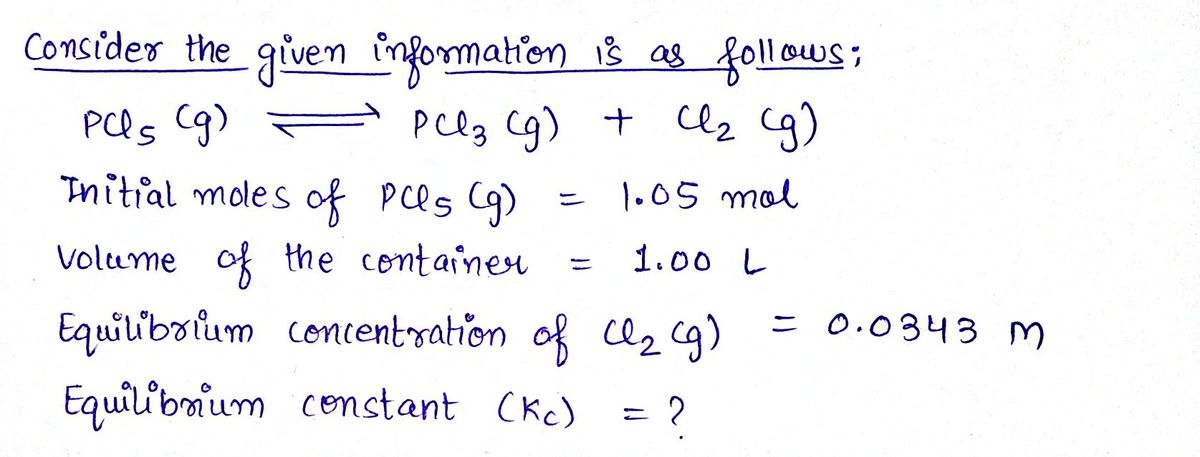 Consider the given information is as follows;
PCl5 (g) ⇌ PCl3 (g) + Cl2 (g)
Initial moles of PCl5 (g) = 1.05 mol
Volume of the container = 1.00 L
Equilibrium concentration of Cl2 (g) = 0.0343 M
Equilibrium constant (Kc) = ?